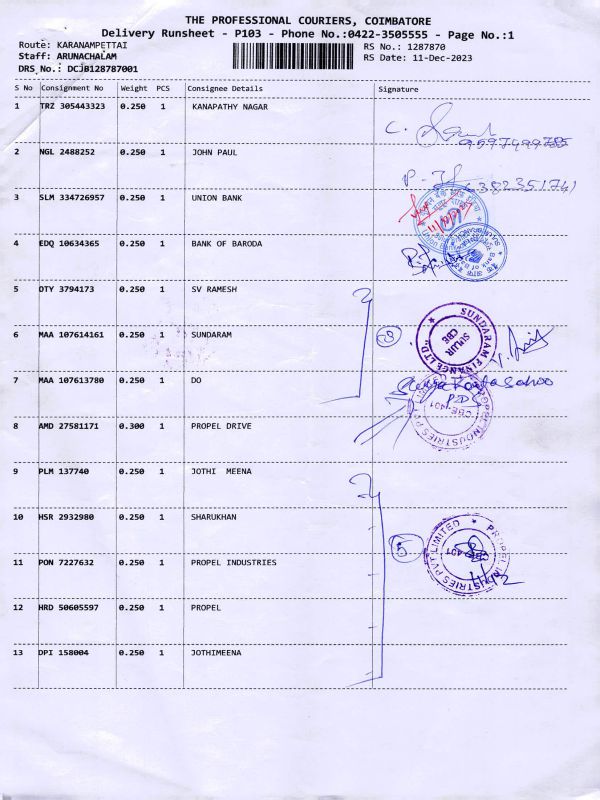 THE PROFESSIONAL COURIERS, COIMBATORE
Delivery Runsheet - P103 - Phone No.:0422-3505555 - Page No.:1
Route: KARANAMPETTAI
RS No.: 1287870
Staff: ARUNACHALAM
RS Date: 11-Dec-2023
DRS No.: DCJB128787001
S No Consignment No Weight PCS Consignee Details Signature
1 TRZ 305443323 0.250 1 KANAPATHY NAGAR
C.
2 NGL 2488252 0.250 1 JOHN PAUL
3 SLM 334726957 0.250 1 UNION BANK
4 EDQ 10634365 0.250 1 BANK OF BARODA
5 DTY 3794173 0.250 1 SV RAMESH
6 MAA 107614161 0.250 1 SUNDARAM
SUNDARAM FINANCE LTD
SULUR
CBE
7 MAA 107613780 0.250 1 DO
8 AMD 27581171 0.300 1 PROPEL DRIVE
CBE-401
9 PLM 137740 0.250 1 JOTHI MEENA
10 HSR 2932980 0.250 1 SHARUKHAN
5
PROPEL INDUSTRIES PVT LIMITED
11 PON 7227632 0.250 1 PROPEL INDUSTRIES
12 HRD 50605597 0.250 1 PROPEL
13 DPI 158004 0.250 1 JOTHIMEENA